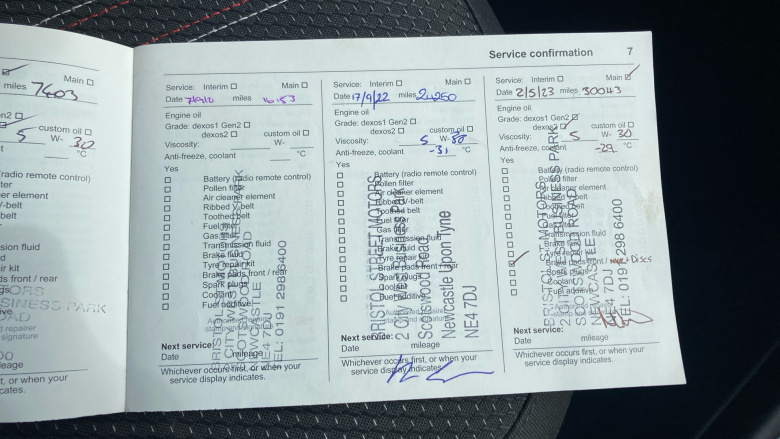 Service confirmation 7
miles 7603
Main
custom oil
5 W- 30
°C
radio remote control)
ter
er element
/-belt
belt
sion fluid
d
ir kit
ds front / rear
SINESS PARK
repairer
signature
t, or when your
cates.
Service: Interim Main
Date miles
Engine oil
Grade: dexos1 Gen2 custom oil
dexos2
Viscosity: W-
Anti-freeze, coolant °C
Yes
Battery (radio remote control)
Pollen filter
Air cleaner element
Ribbed V-belt
Toothed belt
Fuel filter
Gas filter
Transmission fluid
Brake fluid
Tyre repair kit
Brake pads front / rear
Spark plugs
Coolant
Fuel additive
NEWCASTLE
NE4 7DJ
TEL: 0191 2986400
Next service:
Date mileage
Whichever occurs first, or when your
service display indicates.
Service: Interim Main
Date 17/9/22 miles 24250
Engine oil
Grade: dexos1 Gen2
dexos2 custom oil
Viscosity: 5 W-
Anti-freeze, coolant -31 °C
Yes
Battery (radio remote control)
Pollen filter
Air cleaner element
Ribbed V-belt
Toothed belt
Fuel filter
Gas filter
Transmission fluid
Brake fluid
Tyre repair kit
Brake pads front / rear
Spark plugs
Coolant
Fuel additive
BRISTOL STREET MOTORS
2 City W Business Park
Scotswood Road
Newcastle Upon Tyne
NE4 7DJ
Next service:
Date mileage
Whichever occurs first, or when your
service display indicates.
Service: Interim Main
Date 2/5/23 miles 30043
Engine oil
Grade: dexos1 Gen2
dexos2 custom oil
Viscosity: 5 W- 30
Anti-freeze, coolant -29 °C
Yes
Battery (radio remote control)
Pollen filter
Air cleaner element
Ribbed V-belt
Toothed belt
Fuel filter
Gas filter
Transmission fluid
Brake fluid
Tyre repair kit
Brake pads front / rear + Discs
Spark plugs
Coolant
Fuel additive
BRISTOL STREET MOTORS
NEWCASTLE
NE4 7DJ
TEL: 0191 298 6400
Next service:
Date mileage
Whichever occurs first, or when your
service display indicates.